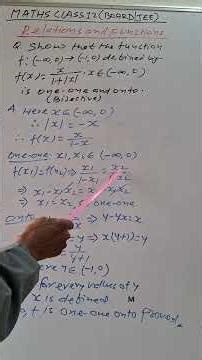 MATHS CLASS 12 (BOARD/JEE)
Relations and Functions
Q. Show that the function
f: (-∞,0) → (-1,0) defined by
f(x) = x/(1+|x|), x ∈ (-∞,0)
is one-one and onto
(Bijective)
A. Here x ∈ (-∞,0)
∴ |x| = -x
∴ f(x) = x/(1-x)
one-one: x1, x2 ∈ (-∞,0)
f(x1) = f(x2) ⇒ x1/(1-x1) = x2
⇒ x1 - x1x2 = x1x2
⇒ x1 = x2 ∴ one-one.
onto ⇒ y-yx = x
= y ⇒ x(y+1) = y
= y/(y+1)
here y ∈ (-1,0)
for every values of y
x is defined M
f is one-one onto Proved.